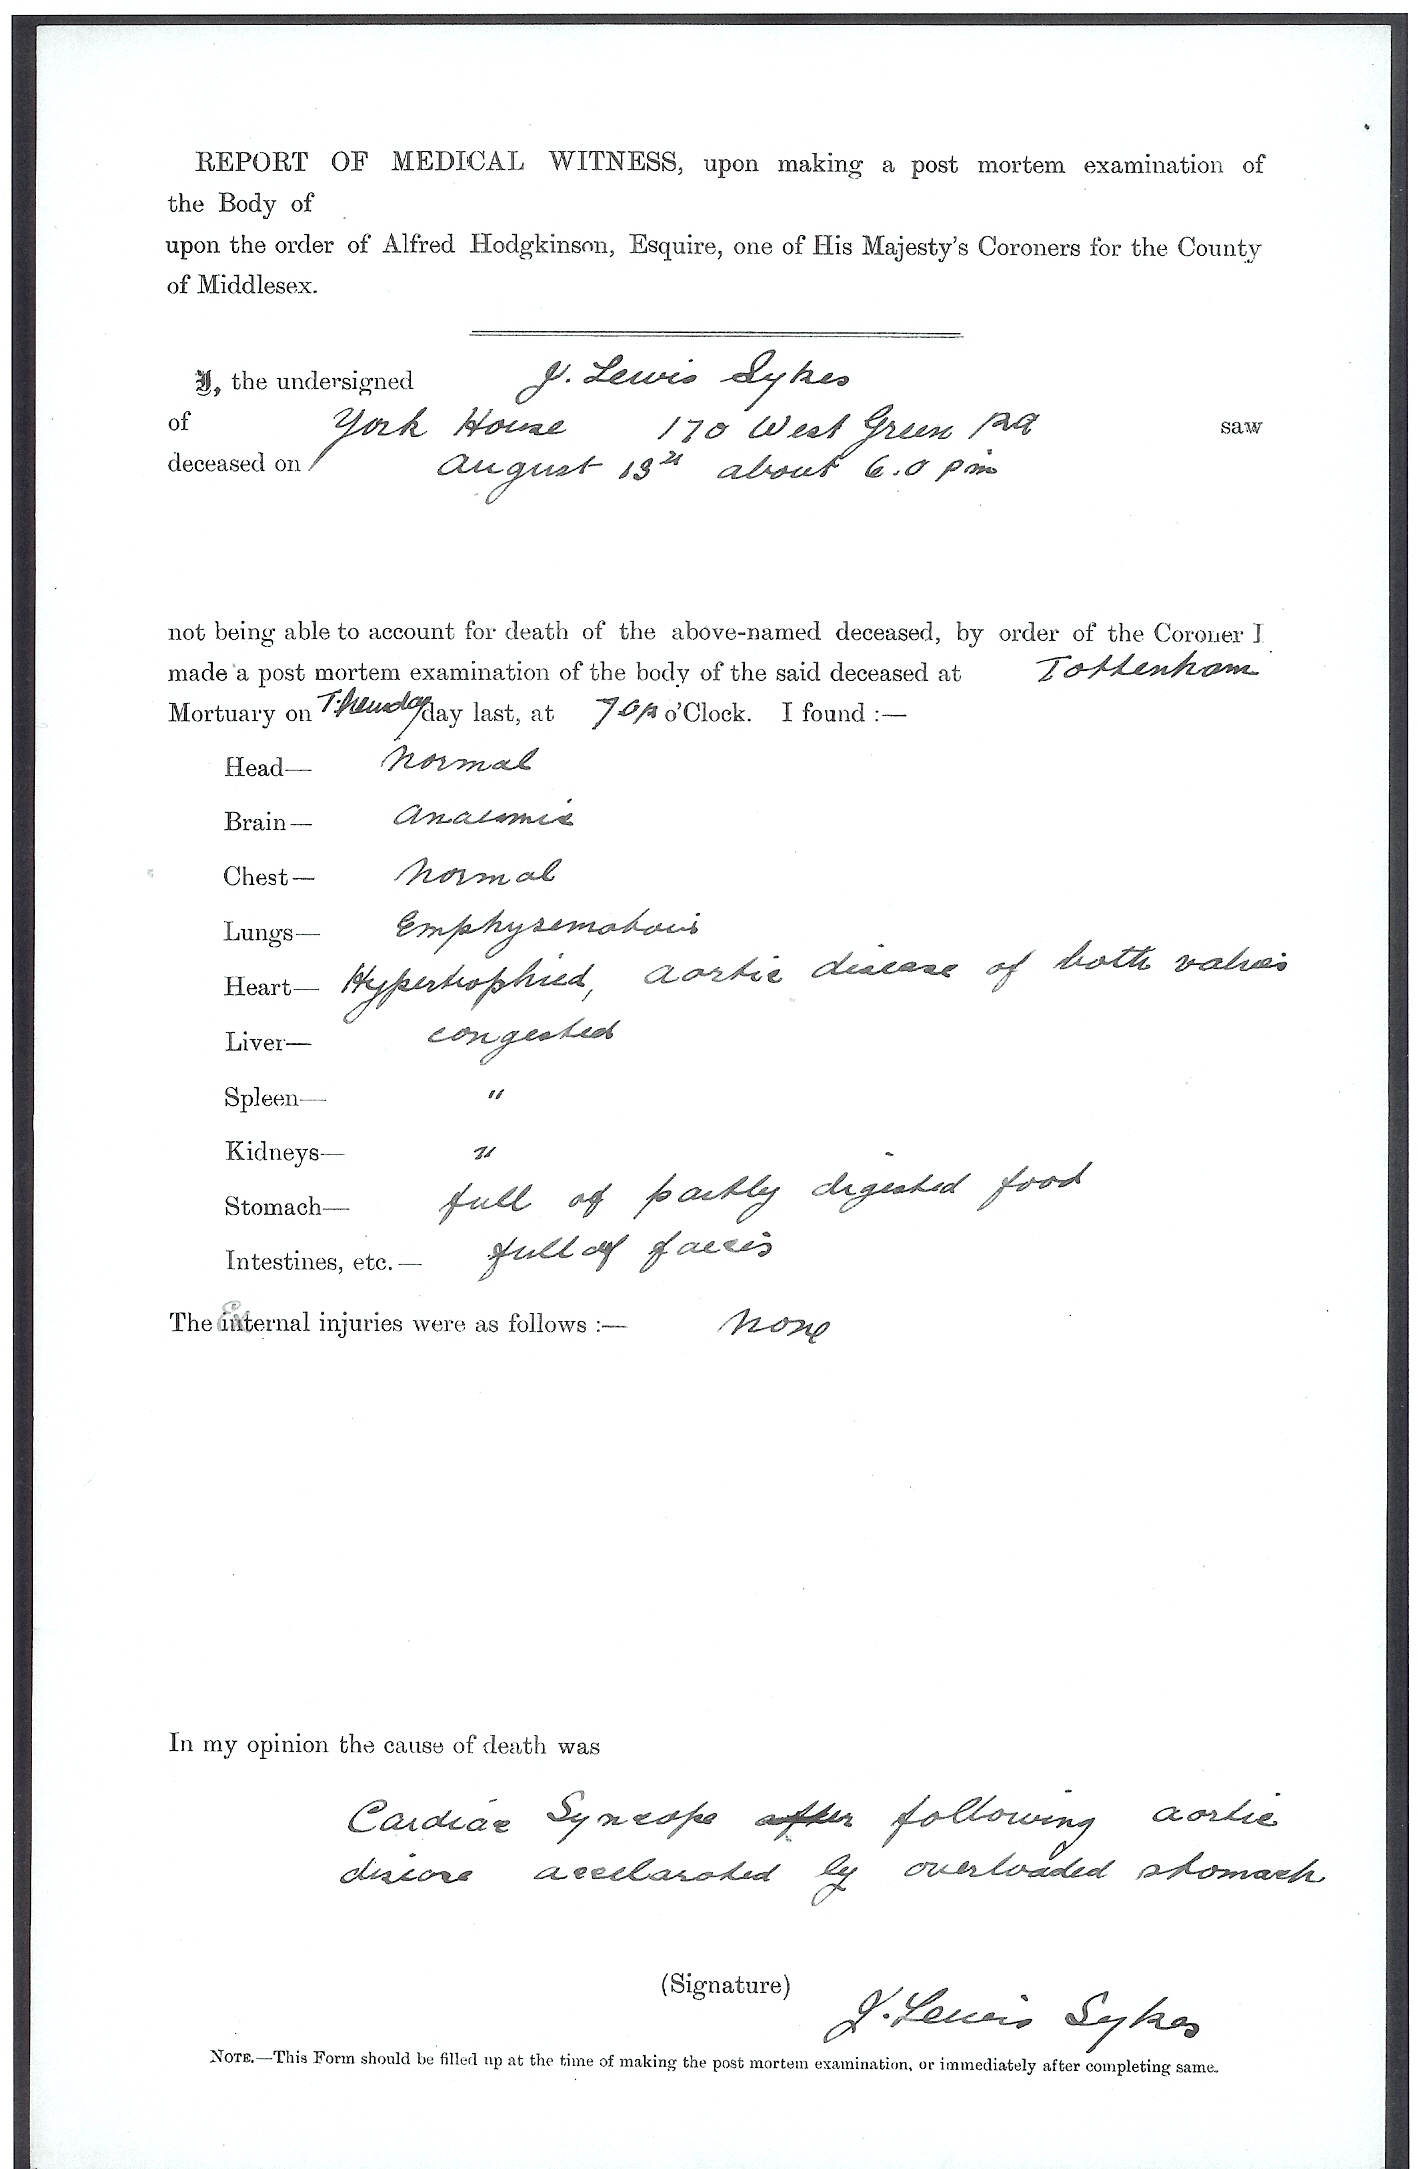 REPORT OF MEDICAL WITNESS, upon making a post mortem examination of
the Body of
upon the order of Alfred Hodgkinson, Esquire, one of His Majesty's Coroners for the County
of Middlesex.
I, the undersigned J. Lewis Sykes
of York House 170 West Green Rd saw
deceased on August 13th about 6.0 pm
not being able to account for death of the above-named deceased, by order of the Coroner I
made a post mortem examination of the body of the said deceased at Tottenham
Mortuary on day last, at 7 o'Clock. I found :—
Head— Normal
Brain— Anaemic
Chest— Normal
Lungs— Emphysematous
Heart— Hypertrophied, aortic disease of both valves
Liver— congested
Spleen— "
Kidneys— "
Stomach— full of partly digested food
Intestines, etc.— full of faeces
The External injuries were as follows :— None
In my opinion the cause of death was
Cardiac Syncope after following aortic
disease accelarated by overloaded stomach
(Signature) J. Lewis Sykes
NOTE.—This Form should be filled up at the time of making the post mortem examination, or immediately after completing same.